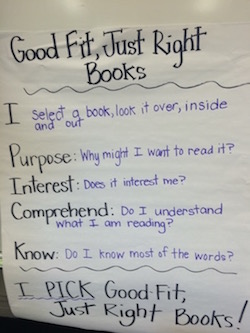 Good Fit, Just Right
Books
I select a book, look it over, inside
and out
Purpose: Why might I want to read it?
Interest: Does it interest me?
Comprehend: Do I understand
what I am reading?
Know: Do I know most of the words?
I PICK Good Fit,
Just Right Books!